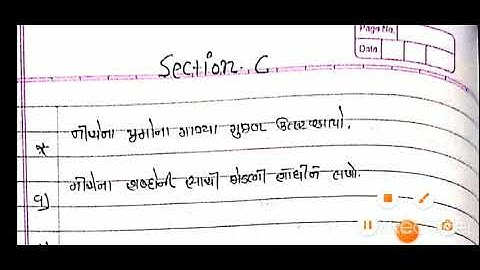 Page No.
Date
Section. C
* નીચેના પ્રશ્નોના માગ્યા મુજબ ઉત્તર આપો.
૧) નીચેના શબ્દોની સાચી જોડણી શોધીને લખો.